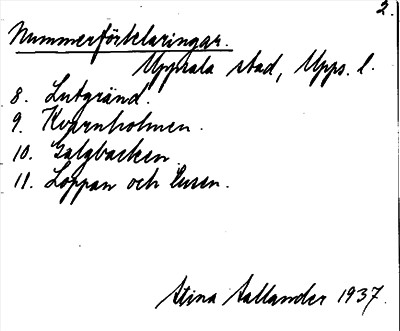 2.
Nummerförklaringar.
Uppsala stad, Upps. l.
8. Lutgränd.
9. Kvarnholmen.
10. Galgbacken.
11. Loppan och Lusen.
Stina Sallander 1937.